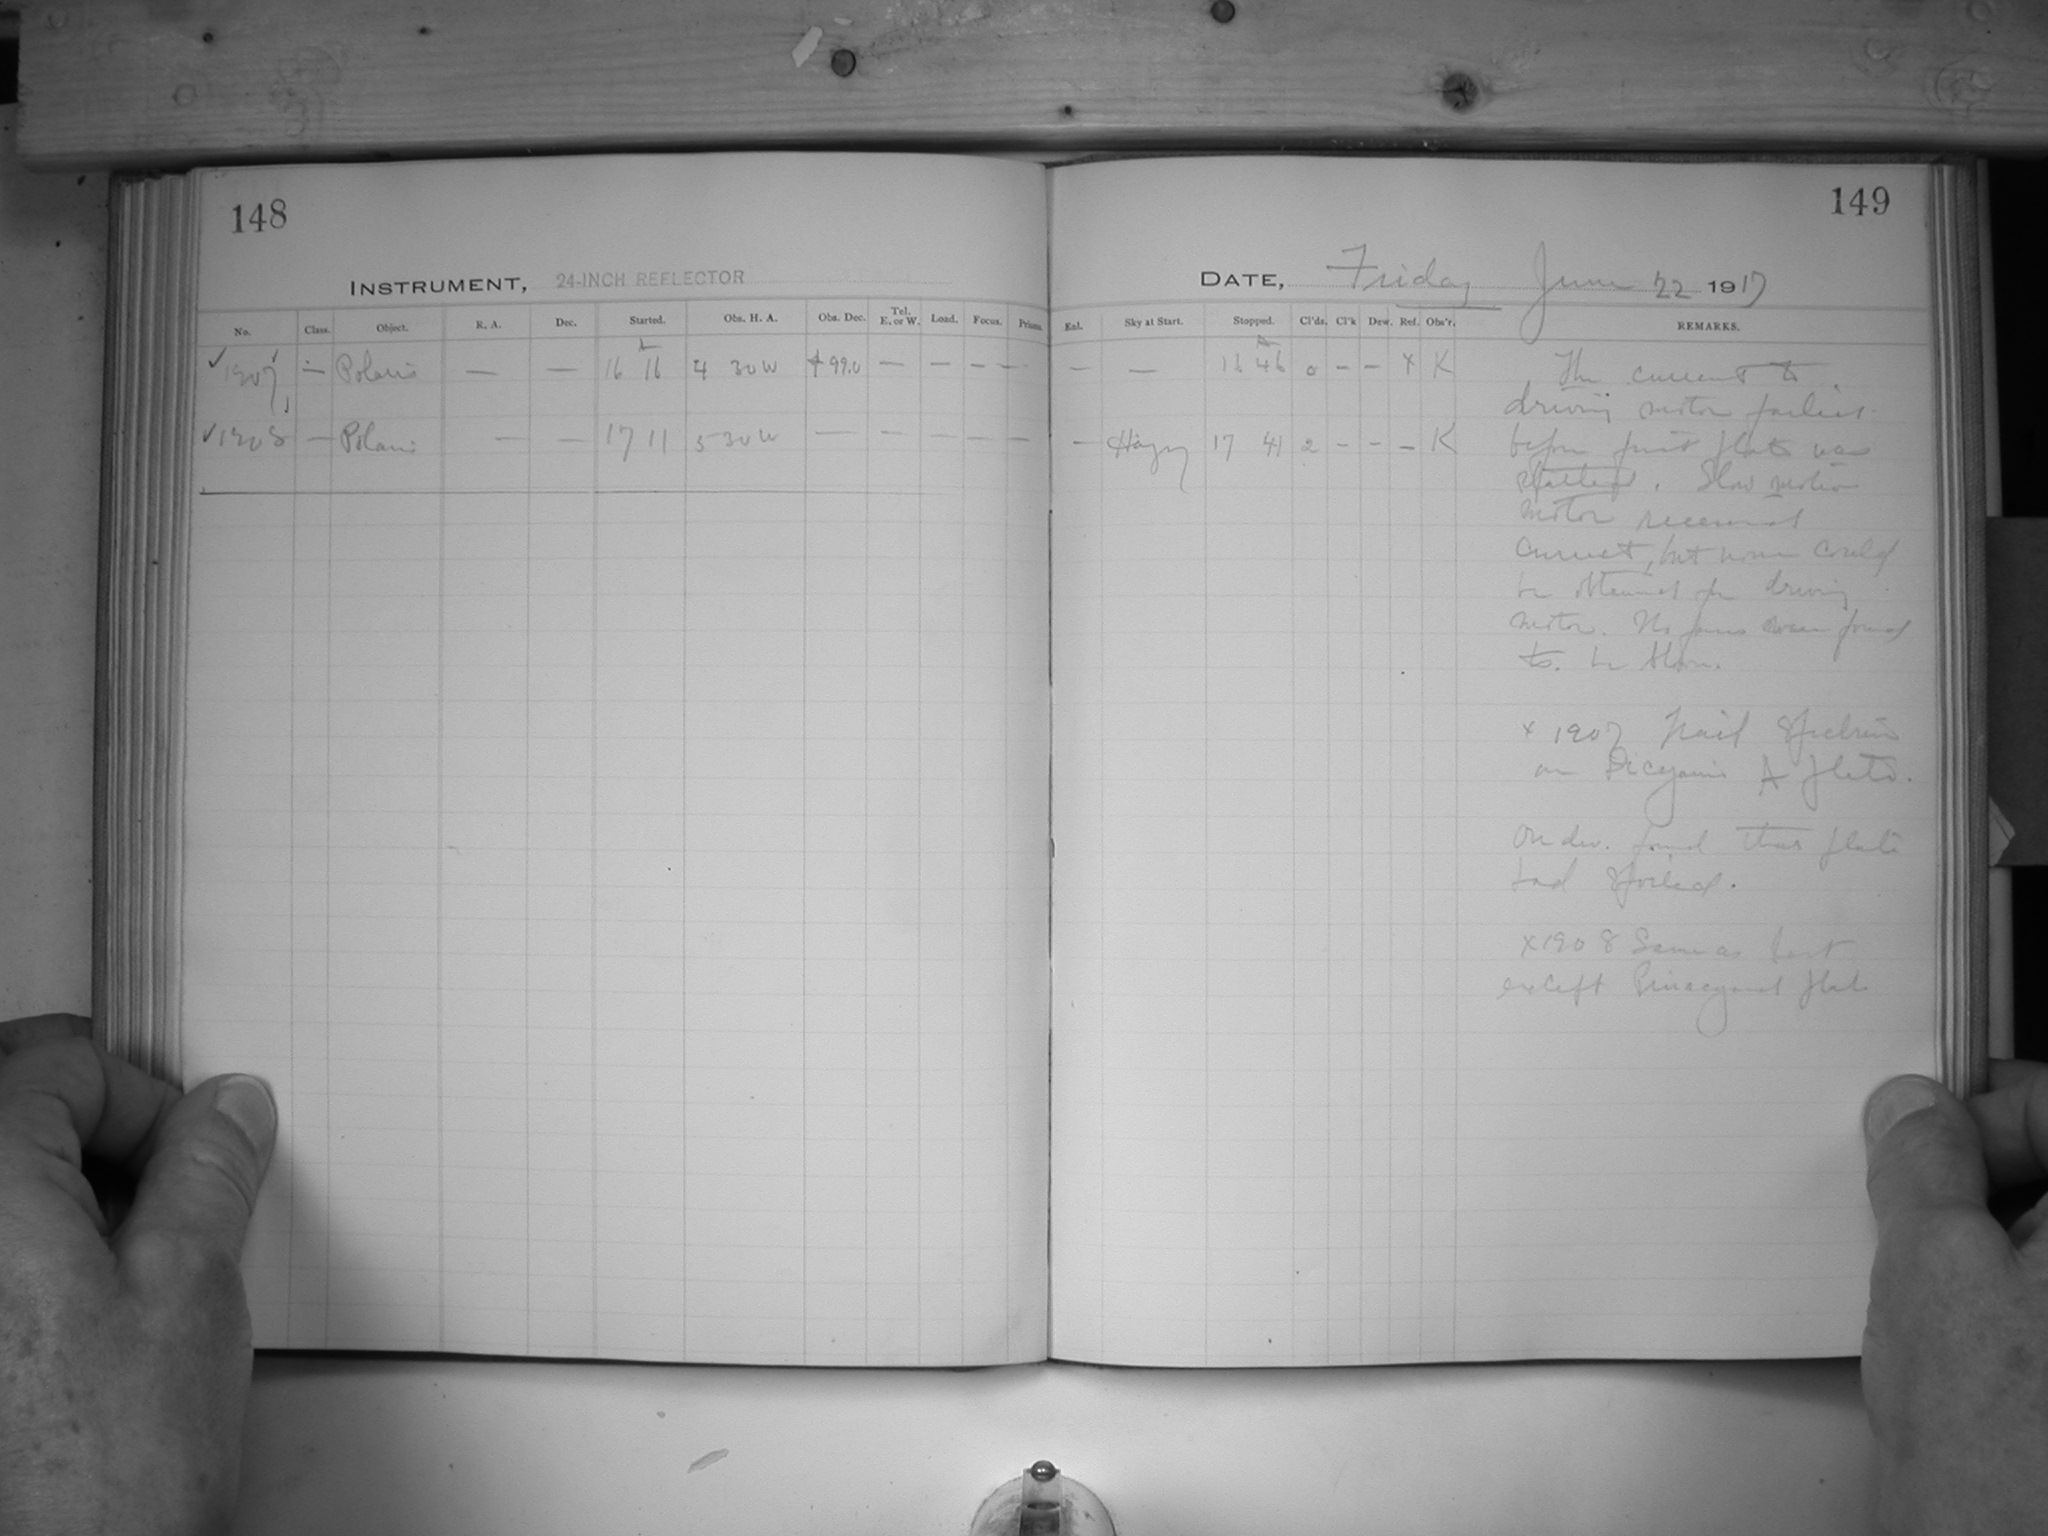 148
149
INSTRUMENT, 24-INCH REFLECTOR
DATE, Friday June 22 1917
No. Class. Object. R. A. Dec. Started. Obs. H. A. Obs. Dec. Tel. E. or W. Load. Focus. Prisms. Enl. Sky at Start. Stopped. Cl'ds. Cl'k Dew. Ref. Obs'r. REMARKS.
✓ 1907 — Polaris — — 16 16 4 30 W +99.0 — — — — — — 16 46 0 — — x K
✓ 1908 — Polaris — — 17 11 5 30 W — — — — — — Hazy 17 41 2 — — — K
The current to
driving motor failed
before first plate was
started. Slow motion
motor received
current, but none could
be obtained for driving
motor. No fuses were found
to be blown.
x 1907 Trail Spectrum
on Dicyanin A plate.
On dev. found that plate
had spoiled.
x 1908 Same as last
except Pinacyanol plate